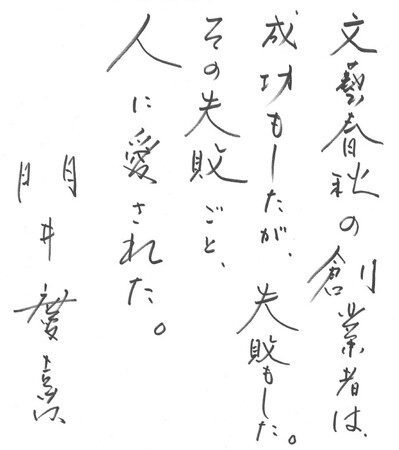 文藝春秋の創業者は、
成功もしたが、失敗もした。
その失敗ごと、
人に愛された。
門井慶喜